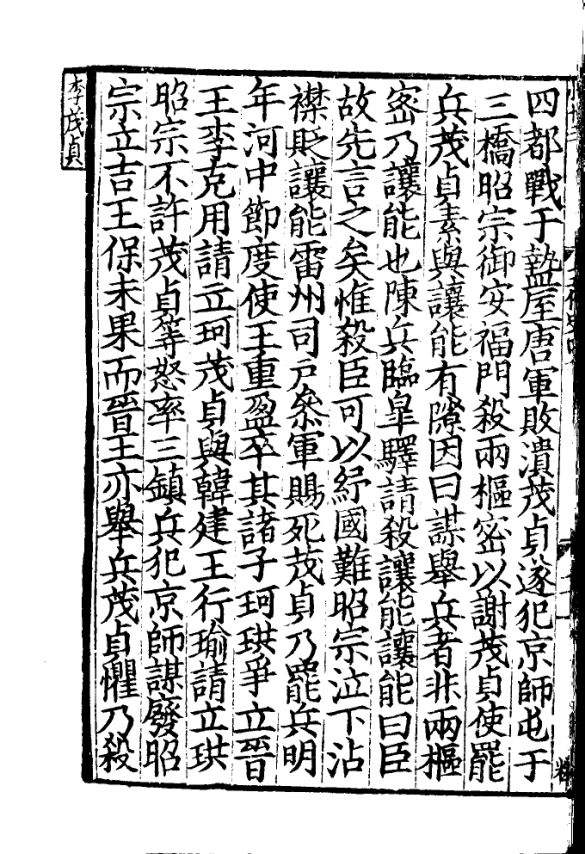 四都戰于盩厔唐軍敗潰茂貞遂犯京師屯于
三橋昭宗御安福門殺兩樞密以謝茂貞使罷
兵茂貞素與讓能有隙因曰謀舉兵者非兩樞
密乃讓能也陳兵臨臯驛請殺讓能讓能曰臣
故先言之矣惟殺臣可以紓國難昭宗泣下沾
襟貶讓能雷州司戸叅軍賜死茂貞乃罷兵明
年河中節度使王重盈卒其諸子珂珙爭立晉
王李克用請立珂茂貞與韓建王行瑜請立珙
昭宗不許茂貞等怒率三鎮兵犯京師謀發昭
宗立吉王保未果而晉王亦舉兵茂貞懼乃殺
李茂貞